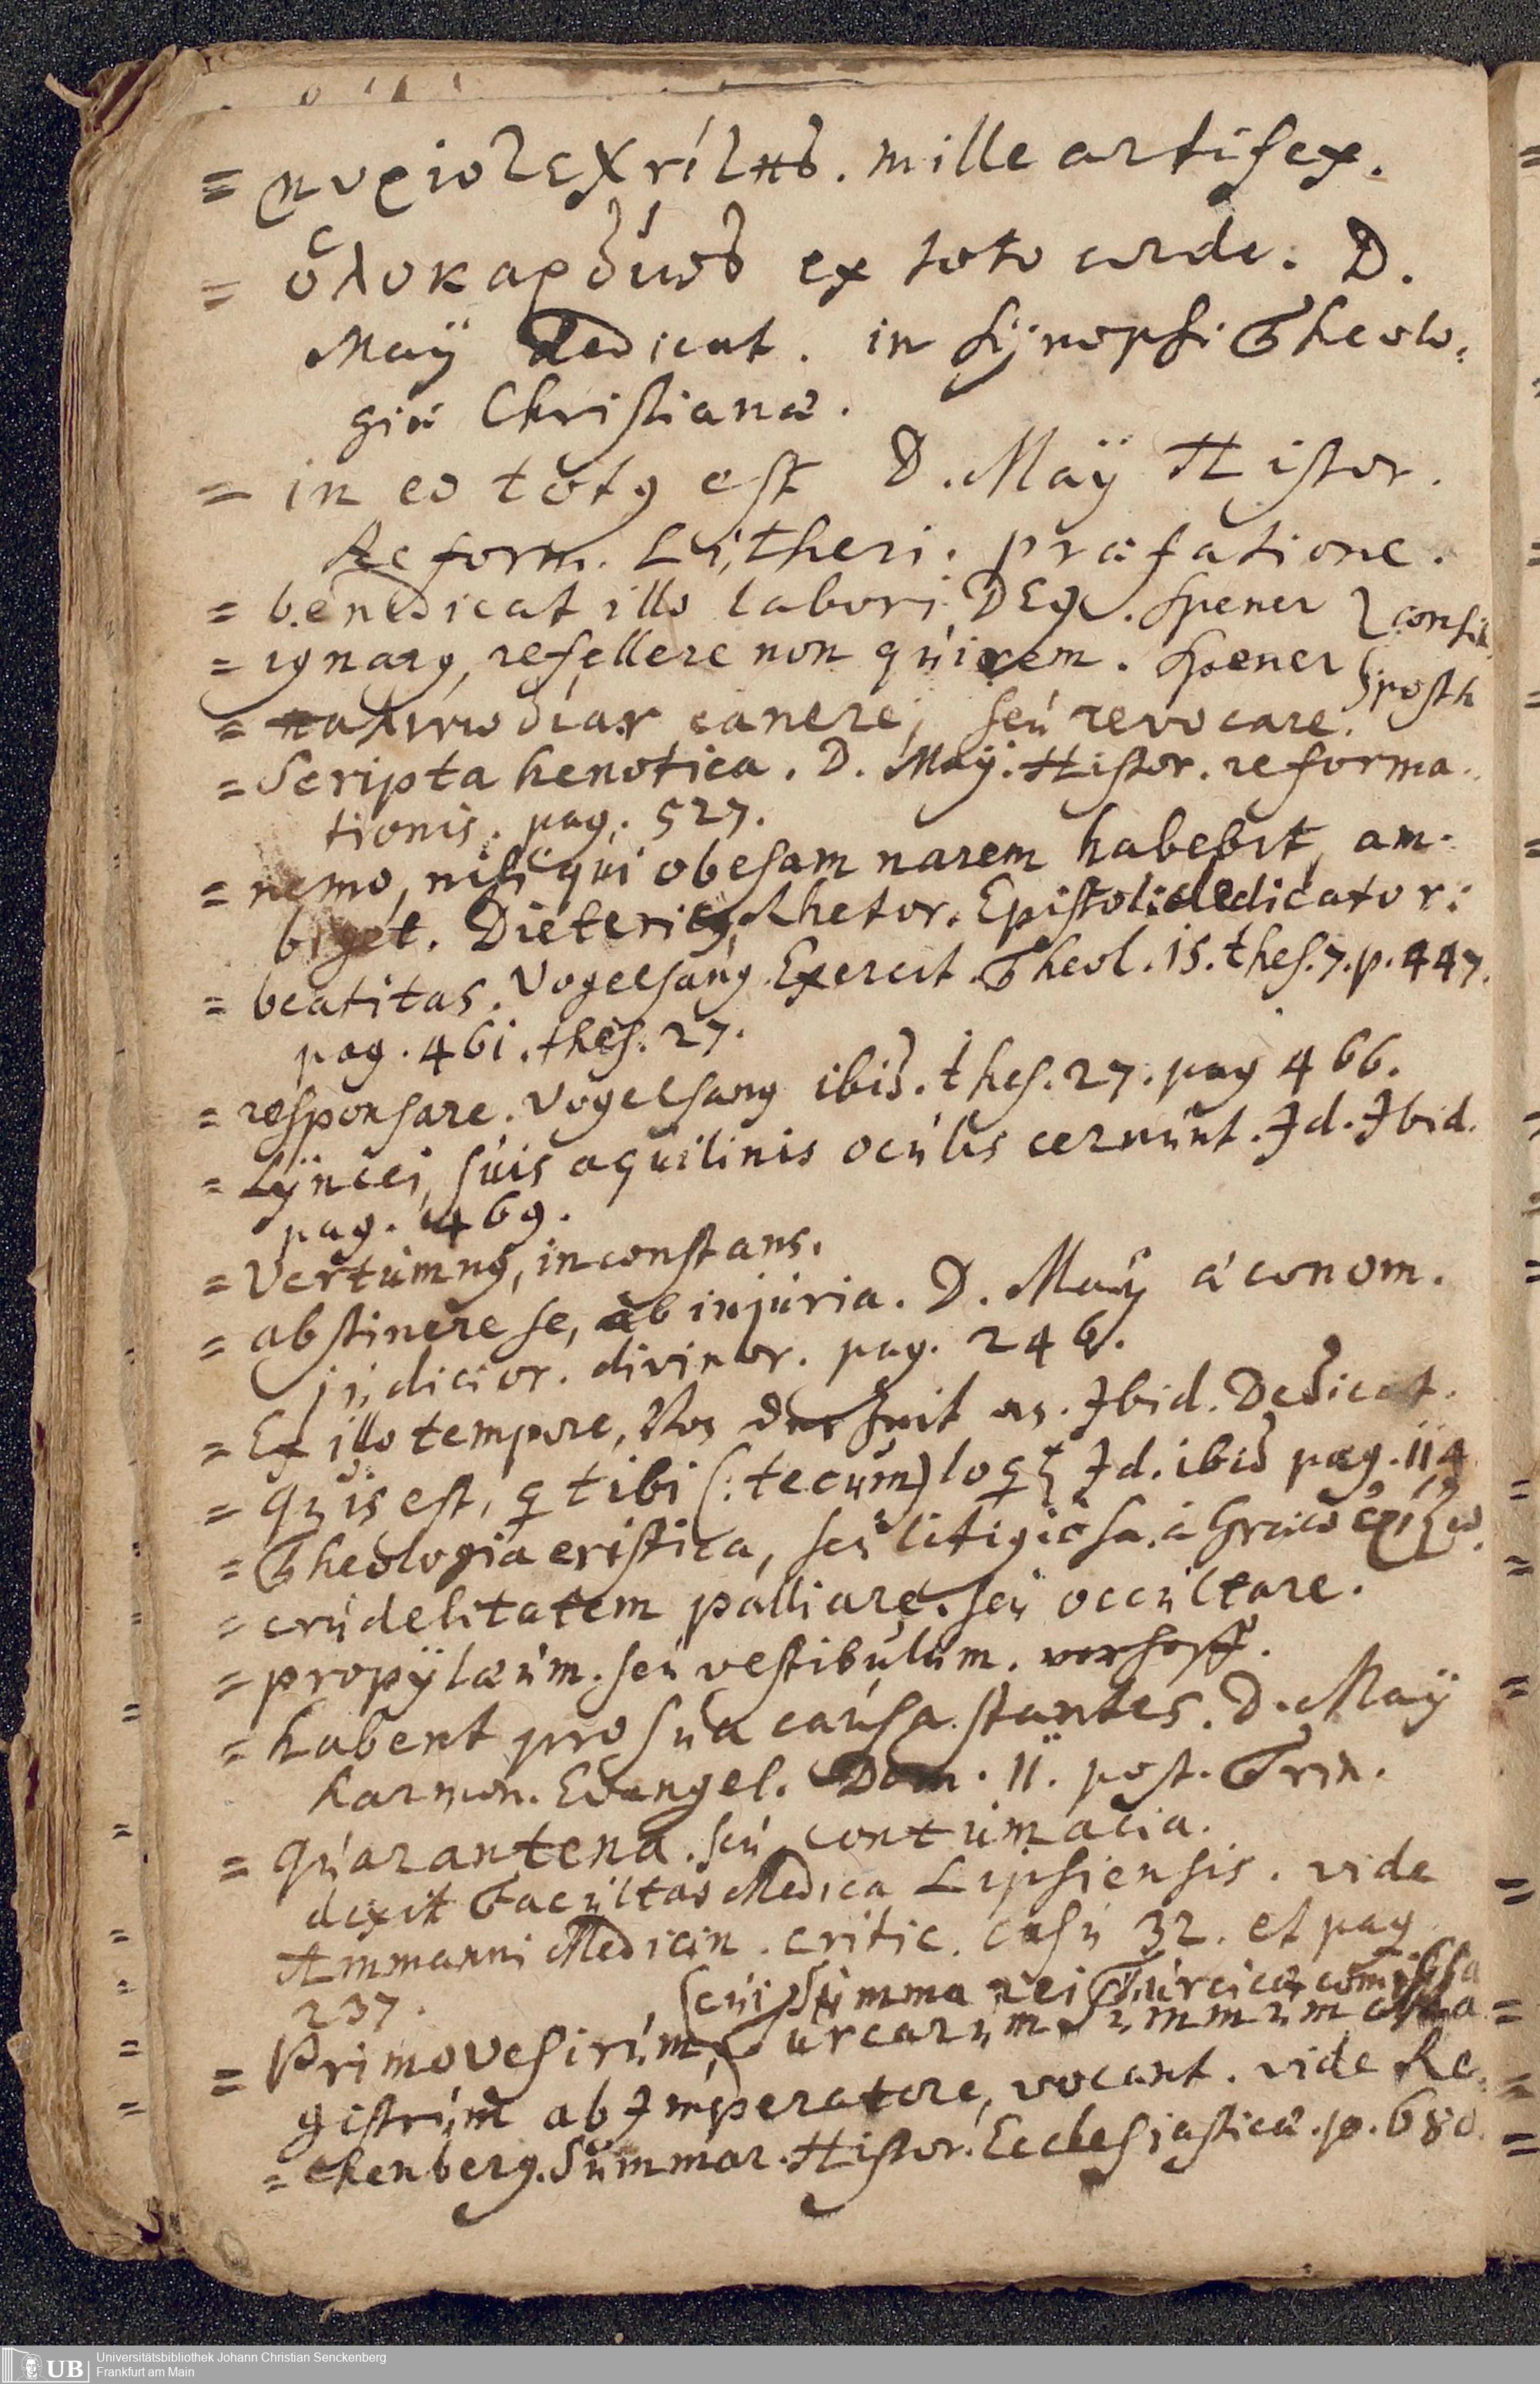 = μυριοτεχνίτης. mille artifex.
= ὁλοκαρδίως ex toto corde. D.
Maÿ dedicat. in sÿnopsi Theolo-
giæ Christianæ.
= in eo totus est D. Maÿ Histor.
Reform. Lutheri. præfatione.
= benedicat illo labori DEus. Spener } consil
= ignarus, refellere non quirem. Spener } posth
= παλινωδίαν canere, seu revocare.
= Scripta henotica. D. Maÿ. Histor. reforma-
tionis. pag. 527.
= nemo, nisi qui obesam narem habebit, am-
biget. Dietericus, Rhetor. Epistol: dedicator:
= beatitas. Vogelsang. Exercit. Theol. 15. thes. 7. p. 447.
pag. 461. thes. 27.
= responsare. Vogelsang ibid. thes. 27. pag 466.
= Lÿncei, suis aquilinis oculis cernunt. Id. Ibid.
pag. 469.
= Vertumnus, inconstans.
= abstinere se, ab injuria. D. Maÿ œconom.
judicior. divinor. pag. 246.
= Ex illo tempore, Ibid. Dedicat.
= quis est, q tibi (: tecum) loq Id. ibid pag. 114
= Theologia eristica, seu litigiosa. à Græco ἐρίζω.
= crudelitatem palliare. seu occultare.
= propÿlæum. seu vestibulum. vorhoff.
= habent pro sua causa stantes. D. Maÿ
harmon. Evangel. Dom. 11. post. Trin.
= quarantena. seu contumacia.
dixit Facultas Medica Lipsiensis. vide
Ammanni Medicin. critic. casu 32. et pag
237.
(cui summa rei Turcicæ comissa
= Primovesirum, Turcarum summum
gistrum ab Imperatore, vocant. vide Re-
= chenberg. Summar. Histor. Ecclesiasticæ. p. 680.
Universitätsbibliothek Johann Christian Senckenberg
Frankfurt am Main
UB